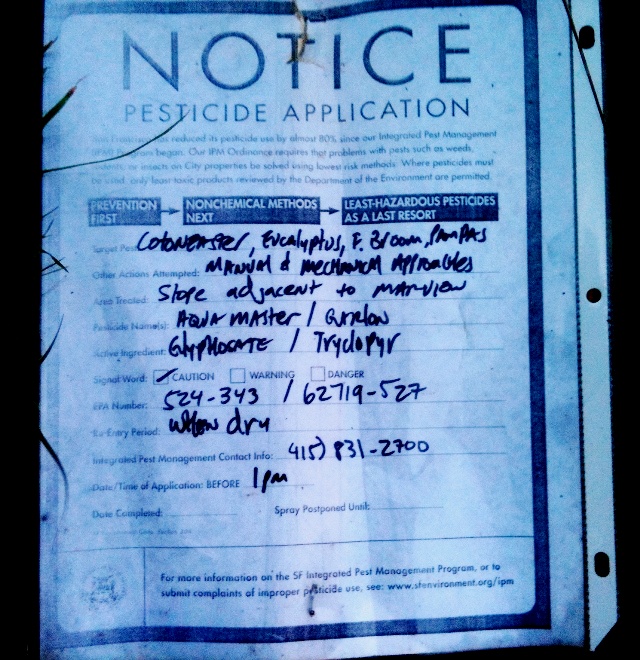 NOTICE
PESTICIDE APPLICATION
has reduced its pesticide use by almost 80% since our Integrated Pest Management
(IPM) Program began. Our IPM Ordinance requires that problems with pests such as weeds,
or insects on City properties be solved using lowest risk methods. Where pesticides must
be used, only least-toxic products reviewed by the Department of the Environment are permitted.
PREVENTION FIRST NONCHEMICAL METHODS NEXT LEAST-HAZARDOUS PESTICIDES AS A LAST RESORT
Target Pest: Cotoneaster, Eucalyptus, F. Broom, PAMPAS
Other Actions Attempted: MANUAL & MECHANICAL Approaches
Area Treated: Slope adjacent to MARVIEW
Pesticide Name(s): AQUA MASTER / GARLON
Active Ingredient: Glyphocate / Tryclopyr
Signal Word: CAUTION WARNING DANGER
EPA Number: 524-343 / 62719-527
Re-Entry Period: when dry
Integrated Pest Management Contact Info: 415) 831-2700
Date/Time of Application: BEFORE 1pm
Date Completed: Spray Postponed Until:
For more information on the SF Integrated Pest Management Program, or to
submit complaints of improper pesticide use, see: www.sfenvironment.org/ipm